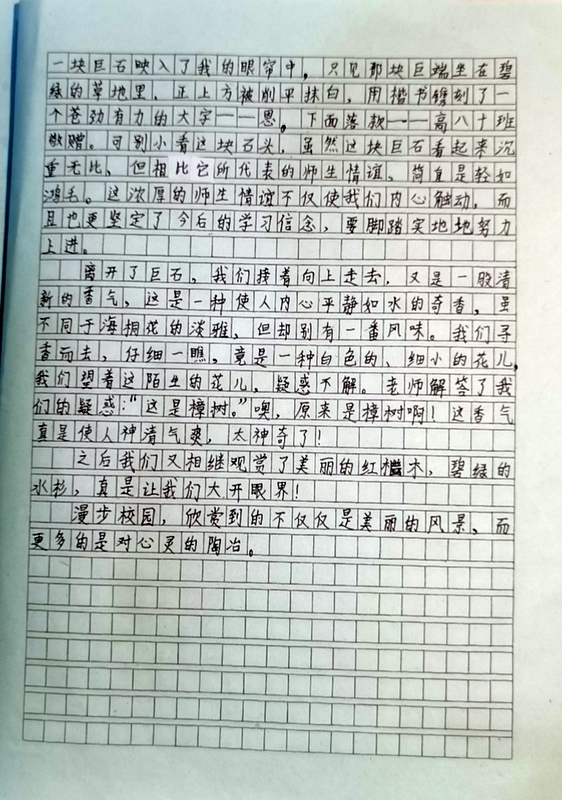 一块巨石映入了我的眼帘中，只见那块巨端坐在碧
绿的草地里，正上方被削平抹白，用楷书镌刻了一
个苍劲有力的大字——恩。下面落款——高八十班
敬赠。可别小看这块石头，虽然这块巨石看起来沉
重无比，但相比它所代表的师生情谊，简直是轻如
鸿毛。这浓厚的师生情谊不仅使我们内心触动，而
且也更坚定了今后的学习信念，要脚踏实地地努力
上进。
离开了巨石，我们接着向上走去，又是一股清
新的香气，这是一种使人内心平静如水的奇香，虽
不同于海桐花的淡雅，但却别有一番风味。我们寻
香而去，仔细一瞧，竟是一种白色的、细小的花儿，
我们望着这陌生的花儿，疑惑不解。老师解答了我
们的疑惑：“这是樟树。”噢，原来是樟树啊！这香气
真是使人神清气爽，太神奇了！
之后我们又相继观赏了美丽的红檵木，碧绿的
水杉，真是让我们大开眼界！
漫步校园，欣赏到的不仅仅是美丽的风景，而
更多的是对心灵的陶冶。